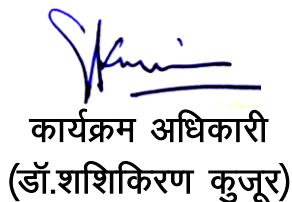 कार्यक्रम अधिकारी
(डॉ.शशिकिरण कुजूर)